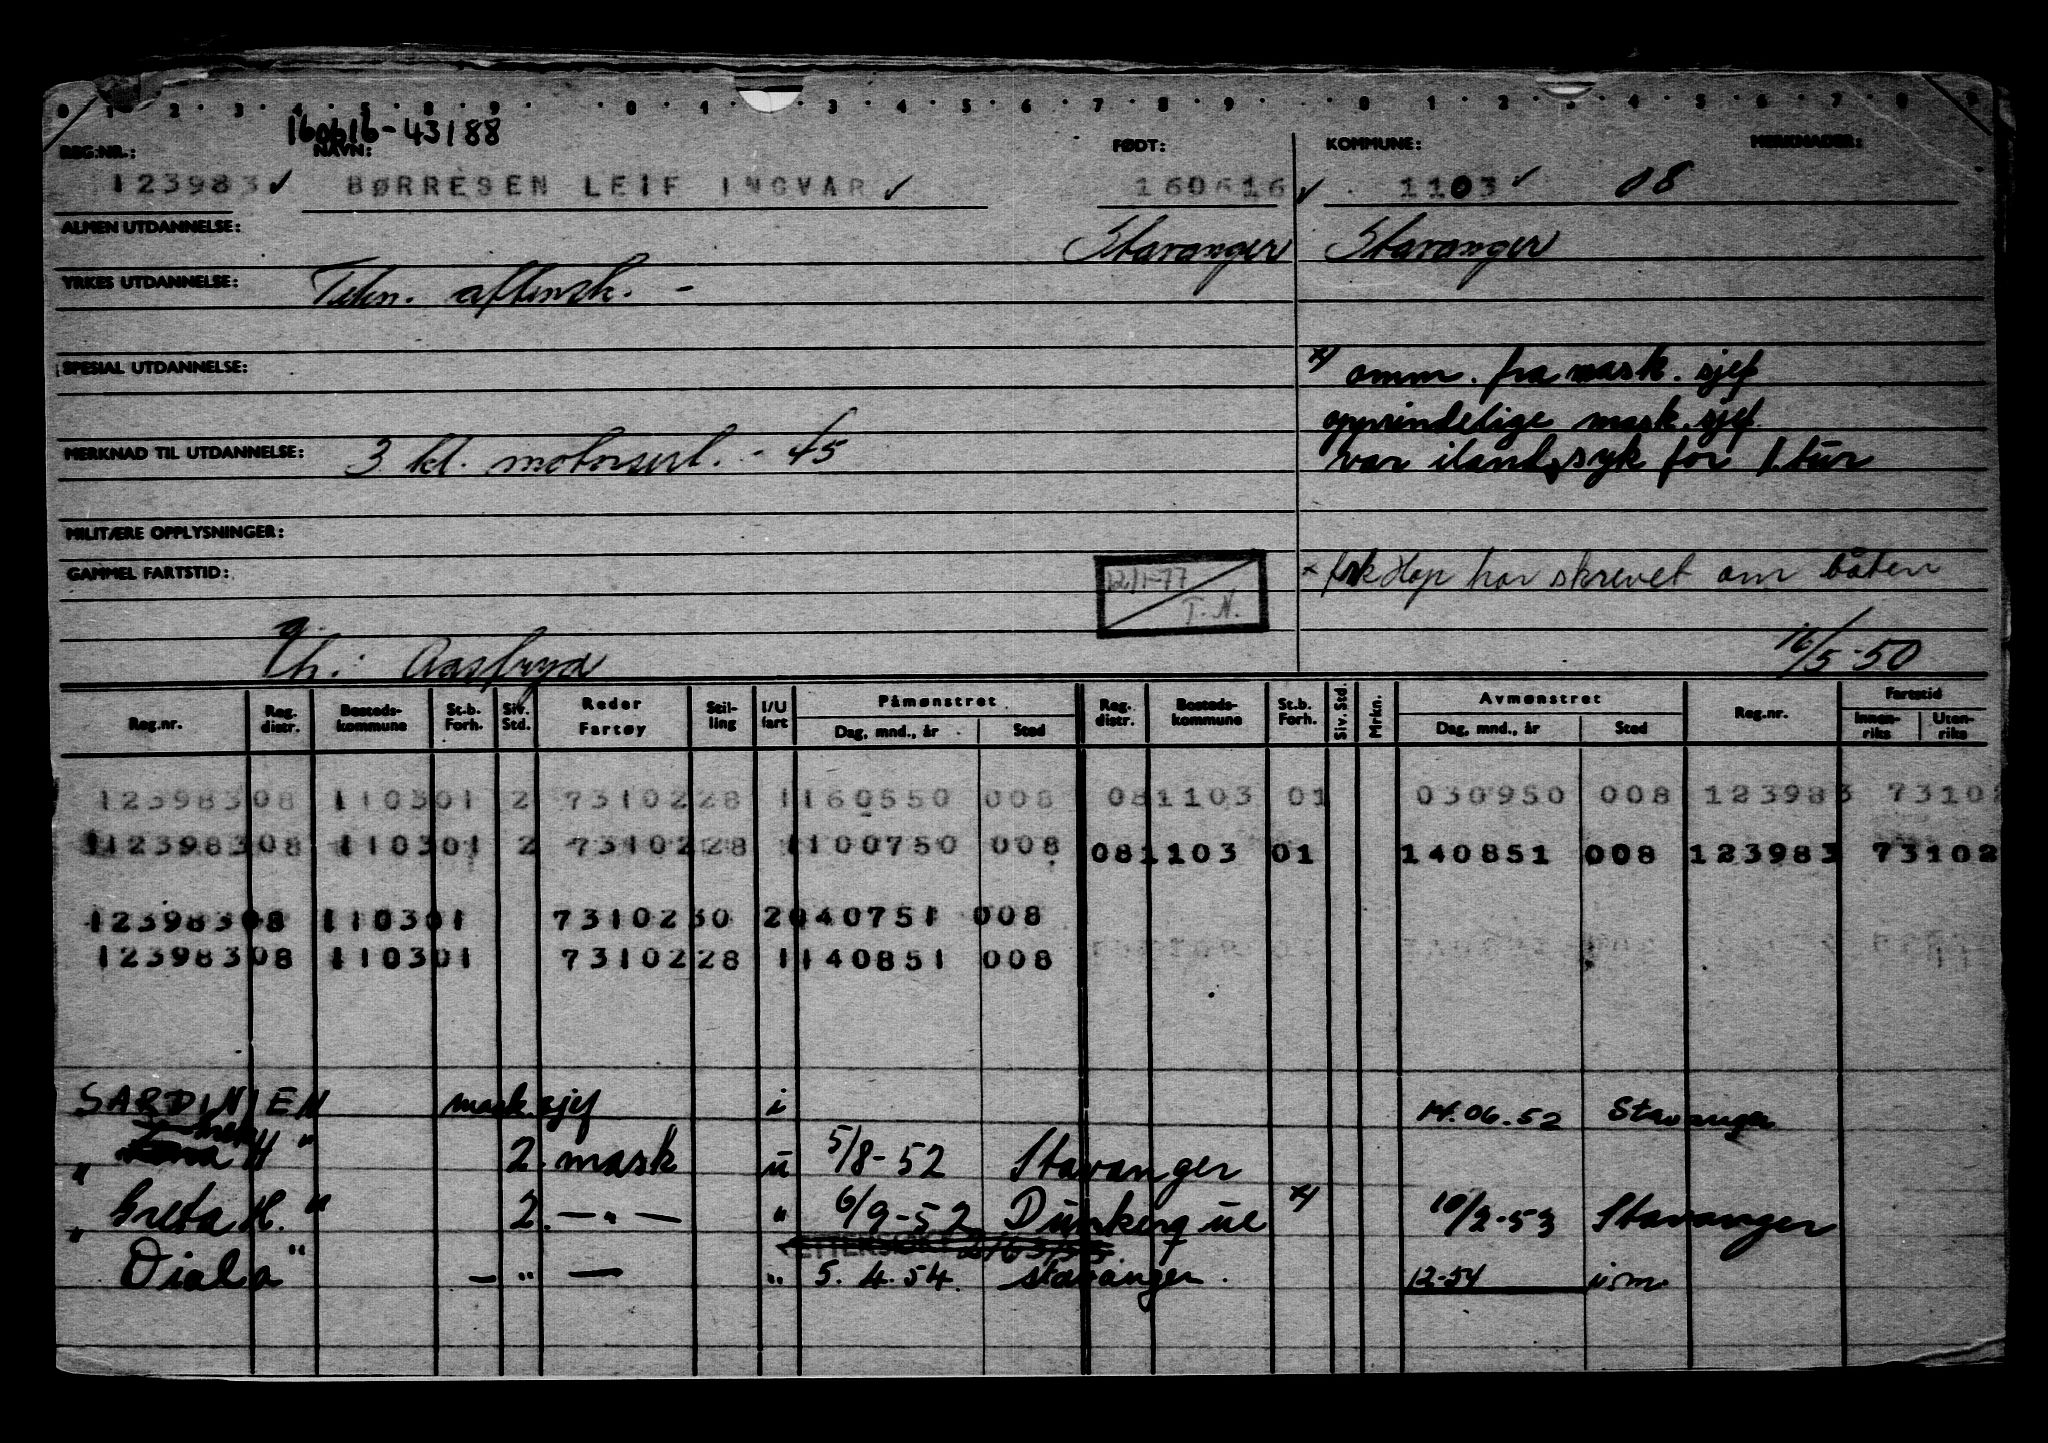 0 1 · 2 · 3 · 4 · 5 · 8 · 9 · · 0 · 1 · 3 · 4 · 5 · 6 · 7 · 8 · 9 · · 0 1 · 2 · 3 · 4 · 5 · 6 · 7 · 8 9
160616-43188
REG.NR.: NAVN: FØDT: KOMMUNE: MERKNADER:
123983 ✓ BØRRESEN LEIF INGVAR ✓ 160616 ✓ 1103 ✓ 08
ALMEN UTDANNELSE: Stavanger Stavanger
YRKES UTDANNELSE: Tekn. aftensk. -
SPESIAL UTDANNELSE: x) omm. fra mask. sjef
opprindelige mask. sjef
MERKNAD TIL UTDANNELSE: 3 kl. motorsert. - 45 var iland syk for 1. tur
MILITÆRE OPPLYSNINGER:
GAMMEL FARTSTID: 12/1-77 x har skrevet om båten
T.N.
16/5-50
Reg.nr. Reg. distr. Bosteds-kommune St.b. Forh. Siv. Std. Reder Fartøy Stil-ling I/U fart Påmønstret Dag, mnd., år Sted Reg. distr. Bosteds-kommune St.b. Forh. Siv. Std. Mrkn. Avmønstret Dag, mnd., år Sted Reg.nr. Fartstid Innen-riks Uten-riks
123983 08 1103 01 2 73102 28 1 160550 008 08 1103 01 030950 008 123983 73102
123983 08 1103 01 2 73102 28 1 100750 008 08 1103 01 140851 008 123983 73102
123983 08 1103 01 73102 30 2 040751 008
123983 08 1103 01 73102 28 1 140851 008
SARDINIEN mask. sjef i 14.06.52 Stavanger
" H " 2. mask u 5/8-52 Stavanger
" Greta H. " 2. — " — " 6/9-52 Dunkerque x) 10/2-53 Stavanger
Diala " — " — " 5. 4. 54. Stavanger. 12-54